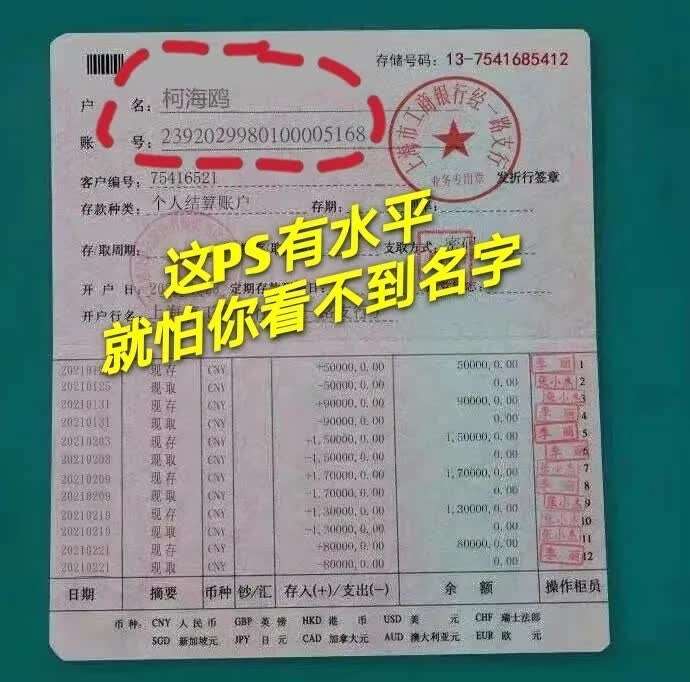 存储号码: 13-7541685412
户 名: 柯海鸥
账 号: 2392029980100005168
上海市工商银行经一路支行
业务专用章
客户编号: 75416521
发折行签章
存款种类: 个人结算账户 存期:
存取周期: 支取方式: 密码
这PS有水平
就怕你看不到名字
开户日:
定期存款
开户行名: 上海
现存 CNY +50000,0.00 50000,0.00 李丽 1
20210125 现取 CNY -50000,0.00 0.00 张小杰 2
20210131 现存 CNY +90000,0.00 90000,0.00 张小杰 3
20210131 现取 CNY -90000,0.00 0.00 李丽 4
20210203 现存 CNY +1,50000,0.00 1,50000,0.00 李丽 5
20210203 现取 CNY -1,50000,0.00 0.00 李丽 6
20210209 现存 CNY +1,70000,0.00 1,70000,0.00 张小杰 7
20210209 现取 CNY -1,70000,0.00 0.00 李丽 8
20210219 现存 CNY +1,30000,0.00 1,30000,0.00 张小杰 9
20210219 现取 CNY -1,30000,0.00 0.00 张小杰 10
20210221 现存 CNY +80000,0.00 80000,0.00 张小杰 11
20210221 现取 CNY -80000,0.00 0.00 李丽 12
日期 摘要 币种 钞/汇 存入(+)/支出(-) 余额 操作柜员
币种: CNY 人民币 GBP 英镑 HKD 港币 USD 美元 CHF 瑞士法郎
SGD 新加坡元 JPY 日元 CAD 加拿大元 AUD 澳大利亚元 EUR 欧元